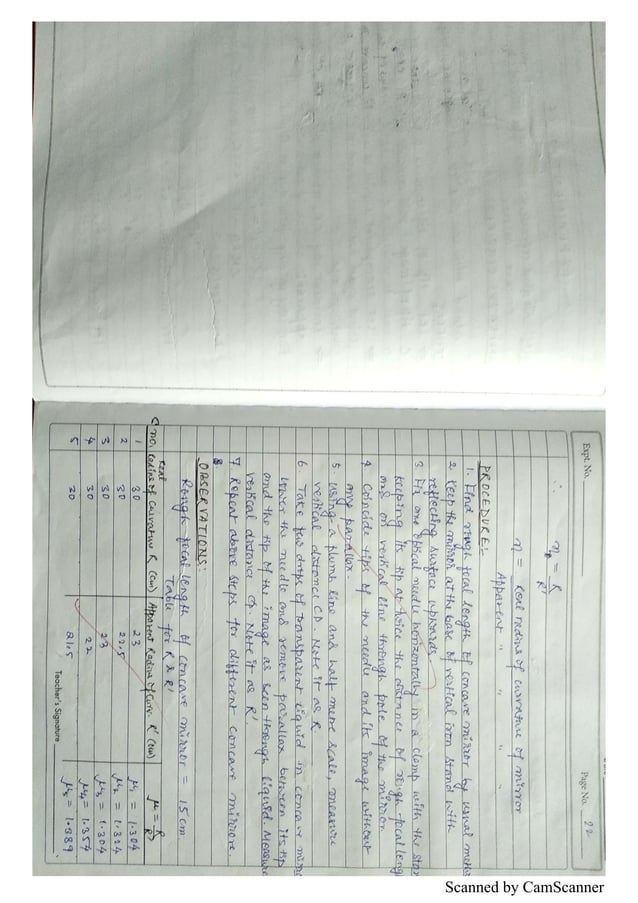 Expt. No.
Page No. 22
∴ n = R/R'
n = Real radius of curvature of mirror
Apparent " " " "
PROCEDURE:-
1. Find rough focal length of concave mirror by usual metho
2. Keep the mirror at the base of vertical iron stand with
reflecting surface upwards
3. Fix one optical needle horizontally in a clamp with the stan
keeping its tip at twice the distance of rough focal leng
and on vertical line through pole of the mirror
4. Coincide tips of the needle and its image without
any parallax.
5. Using a plumb line and half metre scale, measure
vertical distance CD. Note it as R
6 Take few drops of transparent liquid in concave mirro
lower the needle and remove parallax between its tip
and the tip of the image as seen through liquid. Measure
vertical distance Note it as R'
7 Repeat above steps for different concave mirrors.
8
OBSERVATIONS:
Rough focal length of concave mirror = 15 cm
Table for R & R'
S no. Real radius of Curvature R (cm) Apparent Radius of Curv. R' (cm) μ = R/R'
1 30 23 μ1 = 1.304
2 30 22.5 μ2 = 1.324
3 30 23 μ3 = 1.304
4 30 22 μ4 = 1.354
5 30 21.5 μ5 = 1.389
Teacher's Signature
Scanned by CamScanner